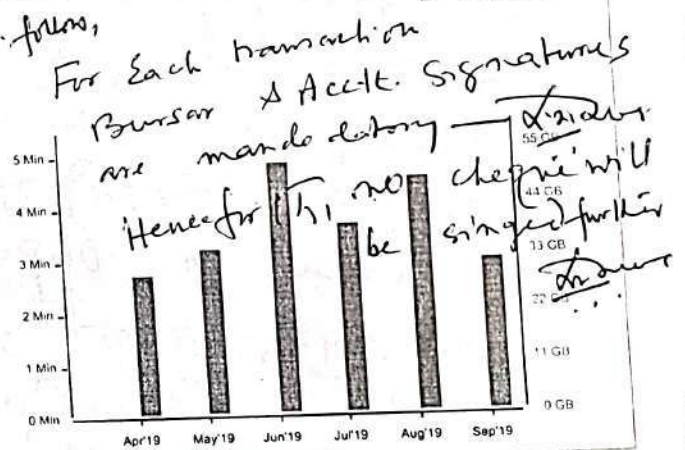 follow,
For Each transaction
Bursar & Acctt. Signatures
are mandodatory
Henceforth, no cheque will
be singed further
5 Min
4 Min
3 Min
2 Min
1 Min
0 Min
55 GB
44 GB
33 GB
22 GB
11 GB
0 GB
Apr'19 May'19 Jun'19 Jul'19 Aug'19 Sep'19